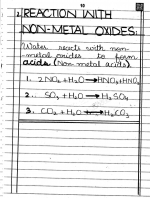 10
2. REACTION WITH
NON-METAL OXIDES:
Water reacts with non-
-metal oxides to form
acids (Non metal acids).
1. 2NO₂+H₂O→HNO₃+HNO₂
2. SO₃+H₂O→H₂SO₄
3. CO₂+H₂O→H₂CO₃